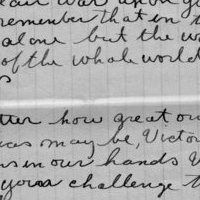 war upon
remember that in t
alone but the wo
of the whole world
tter how great ou
was may be, Victor
in our hands
your challenge t